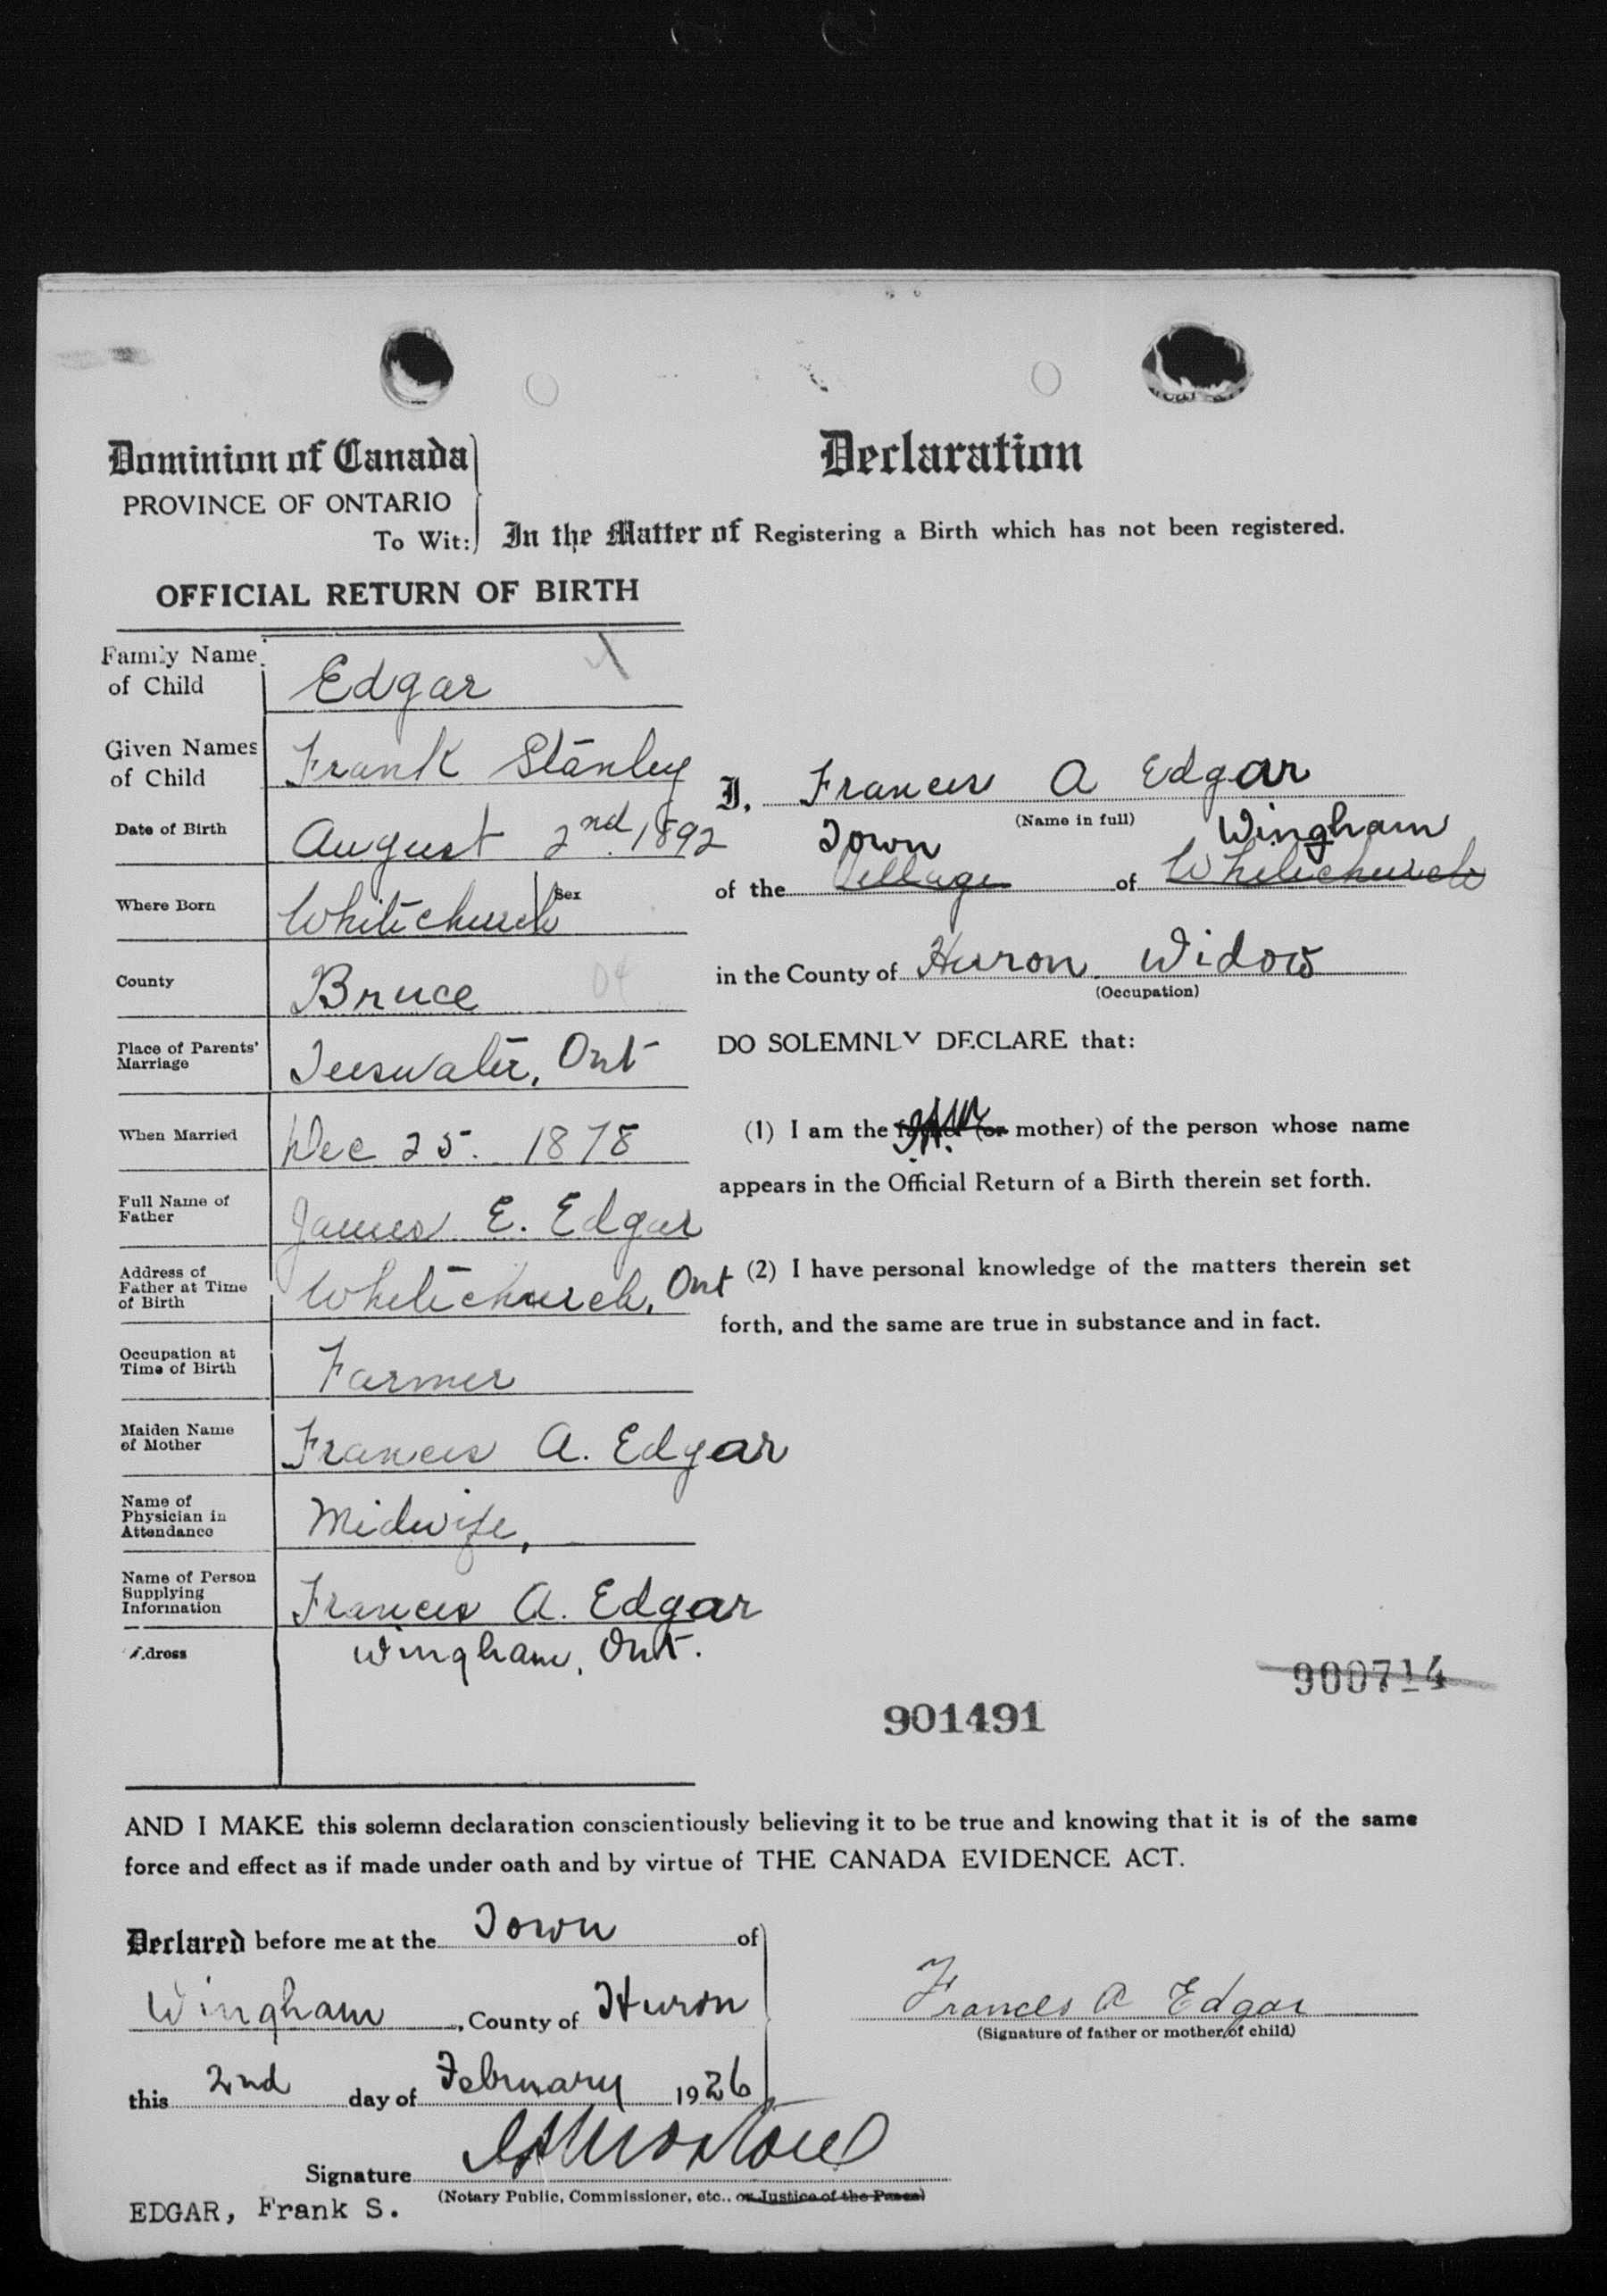 Dominion of Canada
PROVINCE OF ONTARIO
To Wit:
Declaration
In the Matter of Registering a Birth which has not been registered.
OFFICIAL RETURN OF BIRTH
Family Name of Child Edgar
Given Names of Child Frank Stanley
Date of Birth August 2nd 1892
Where Born Whitechurch Sex
County Bruce 04
Place of Parents' Marriage Teeswater, Ont
When Married Dec 25. 1878
Full Name of Father James E. Edgar
Address of Father at Time of Birth Whitechurch, Ont
Occupation at Time of Birth Farmer
Maiden Name of Mother Frances A. Edgar
Name of Physician in Attendance Midwife,
Name of Person Supplying Information Frances A. Edgar
Adress Wingham, Ont.
I, Frances A Edgar
(Name in full)
Town Wingham
of the Village of Whitechurch
in the County of Huron. Widow
(Occupation)
DO SOLEMNLY DECLARE that:
(1) I am the father (or mother) of the person whose name
appears in the Official Return of a Birth therein set forth.
(2) I have personal knowledge of the matters therein set
forth, and the same are true in substance and in fact.
900714
901491
AND I MAKE this solemn declaration conscientiously believing it to be true and knowing that it is of the same
force and effect as if made under oath and by virtue of THE CANADA EVIDENCE ACT.
Declared before me at the Town of
Wingham, County of Huron
this 2nd day of February 1926
Frances A Edgar
(Signature of father or mother of child)
Signature
(Notary Public, Commissioner, etc., or Justice of the Peace)
EDGAR, Frank S.